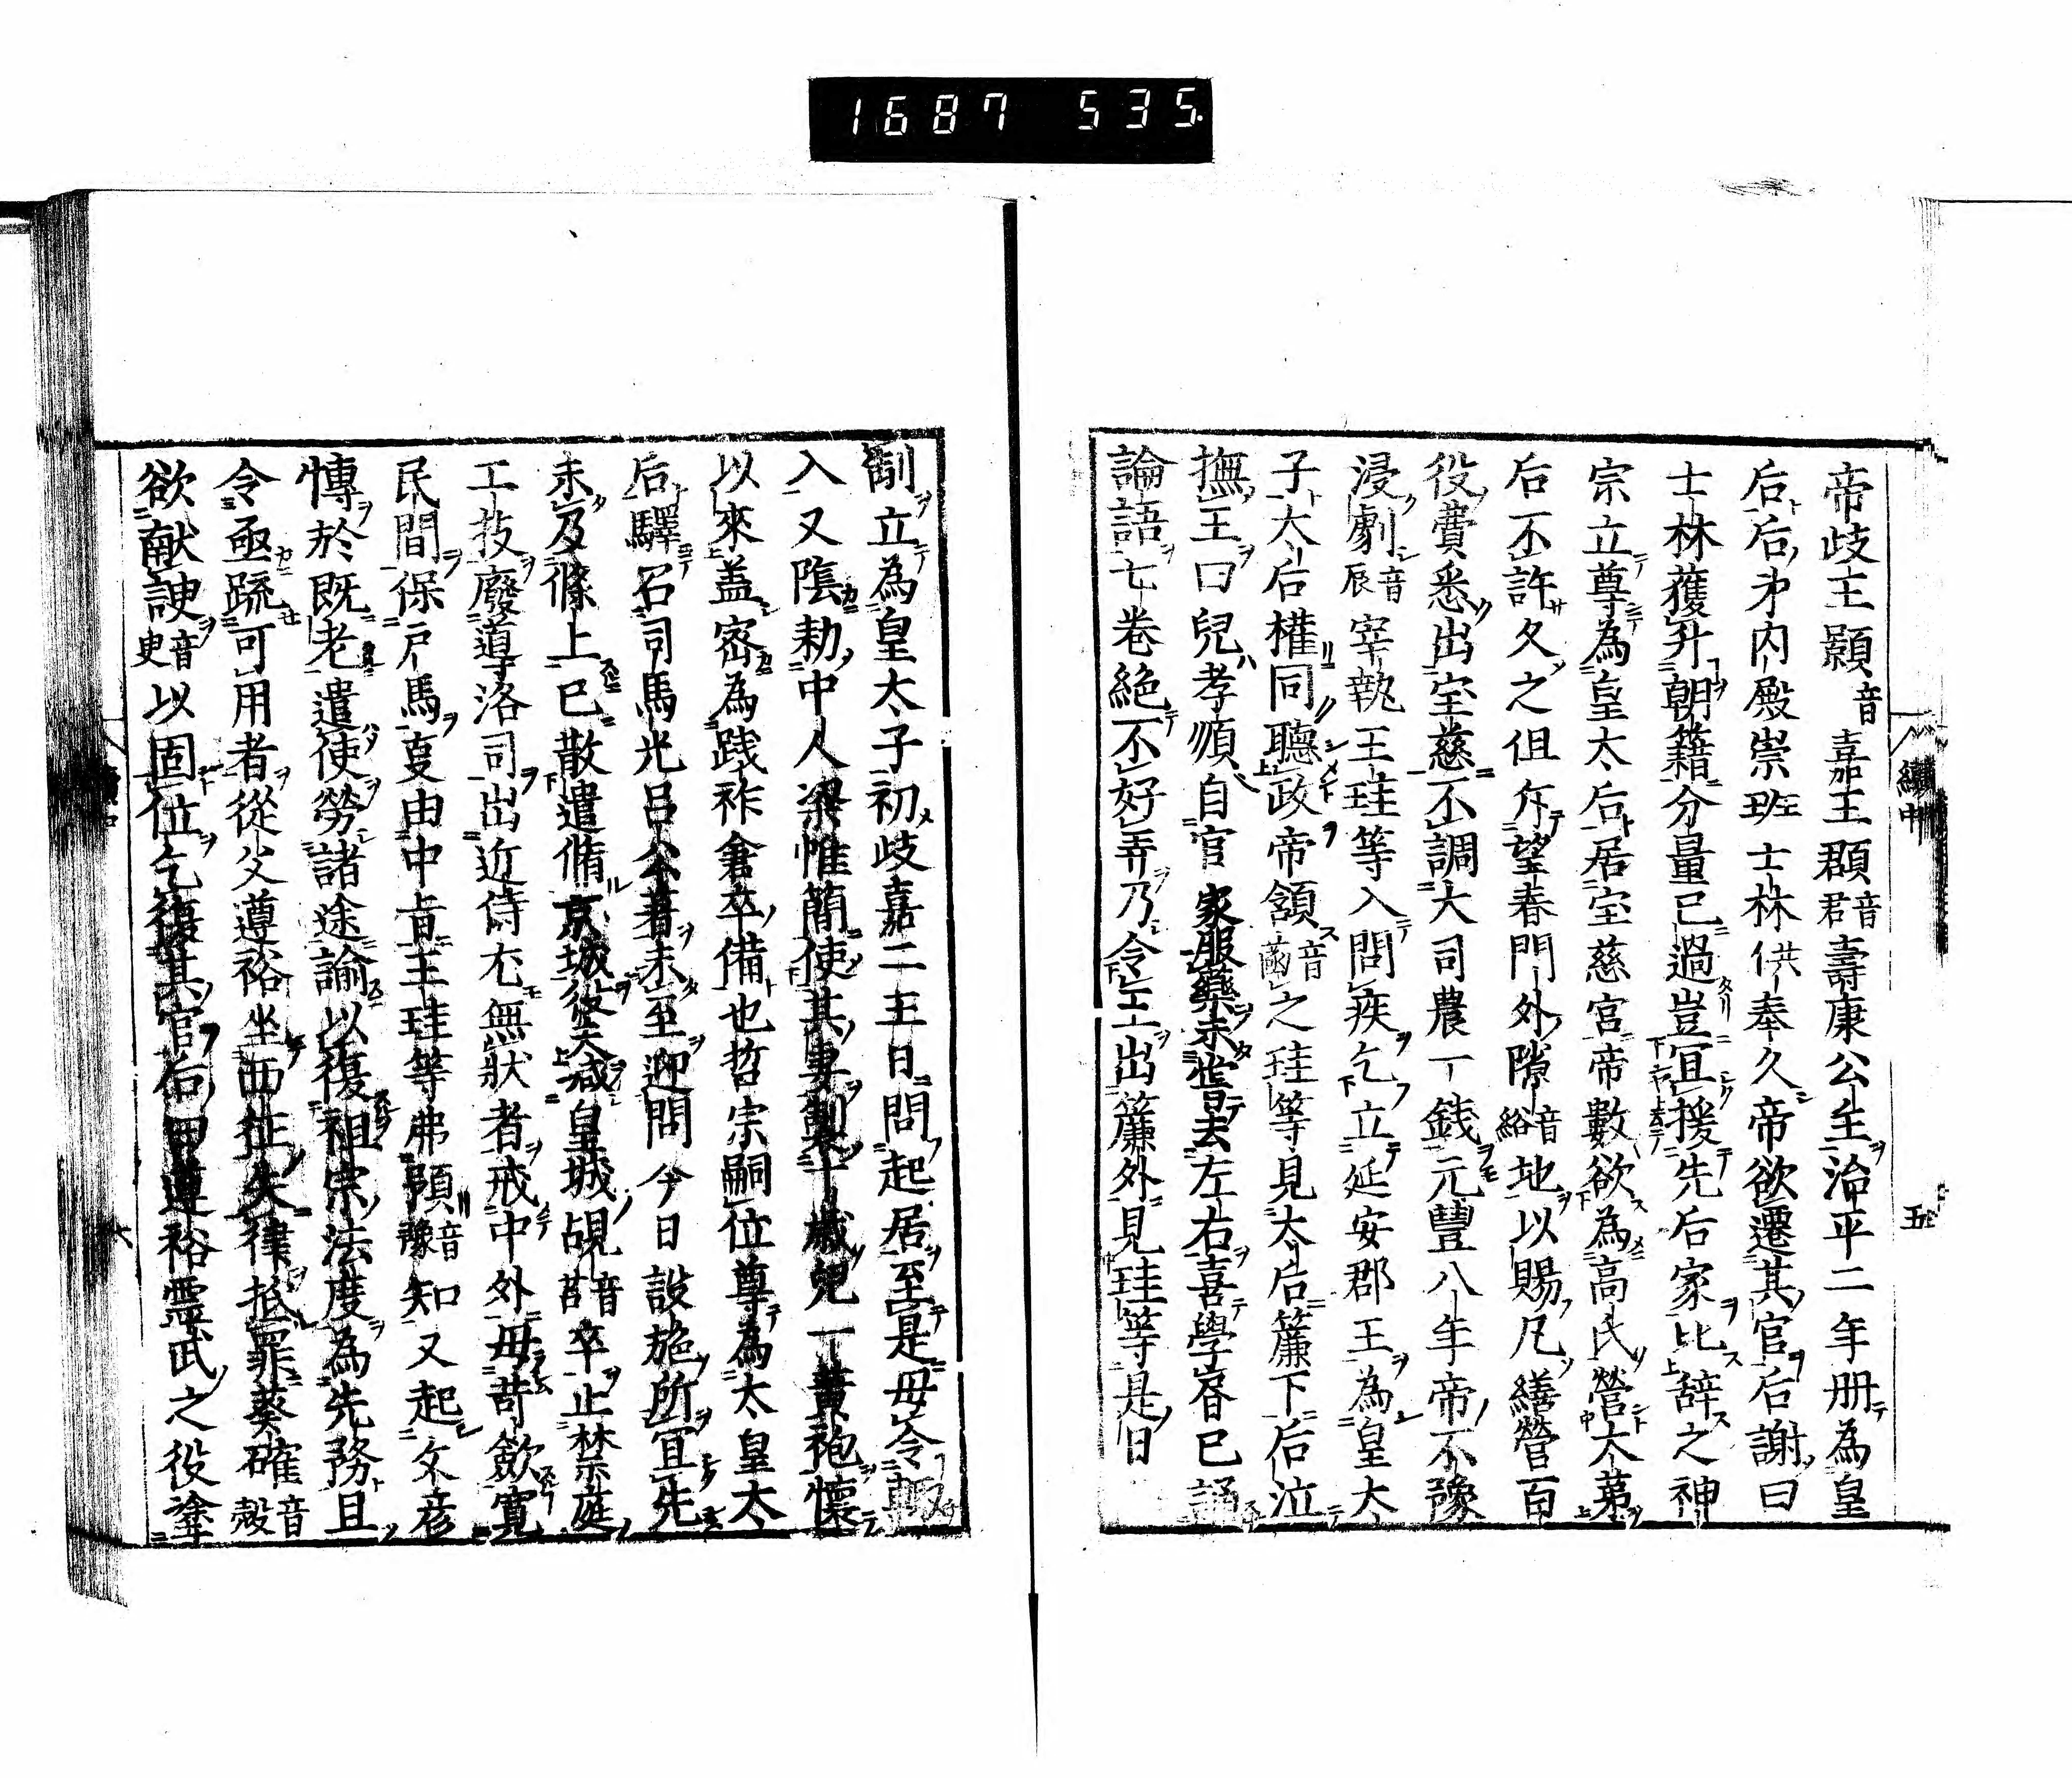 1687 535.
帝歧王顥音嘉王頵音君壽康公主治平二年册為皇
后后弟内殿崇班士林供奉久帝欲遷其官后謝曰
士林獲升朝籍分量已過豈宜援先后家比辞之神
宗立尊為皇太后居宝慈宮帝數欲為高氏營大第
后不許久之但斥望春門外隙音綌地以賜凡繕營百
役費悉出宝慈不調大司農一錢元豐八年帝不豫
浸劇音辰宰執王珪等入問疾乞立延安郡王為皇太
子太后權同聽政帝頷音菡之珪等見太后簾下后泣
撫王曰兒孝順自官家服藥未嘗去左右喜學書已誦
論語七卷絶不好弄乃令王出簾外見珪等是日
續中
五
制立為皇太子初歧嘉二王日問起居至是毋令輒
入又陰勅中人梁惟簡使其妻製十歲兒一黃袍懷
以來盖密為践祚倉卒備也哲宗嗣位尊為太皇太
后驛召司馬光呂公著未至迎問今日設施所宜先
未及條上已散遣脩京城役夫减皇城覘音苫卒止禁庭
工技廢導洛司出近侍尤無狀者戒中外毋苛歛寬
民間保戶馬事由中旨王珪等弗預音豫知又起文彦
愽於既老遣使勞諸途諭以復祖宗法度為先務且
令亟疏可用者從父遵裕坐西征失律抵罪蔡確音殻
欲献諛音臾以固位乞復其官后曰遵裕霊武之役塗
六